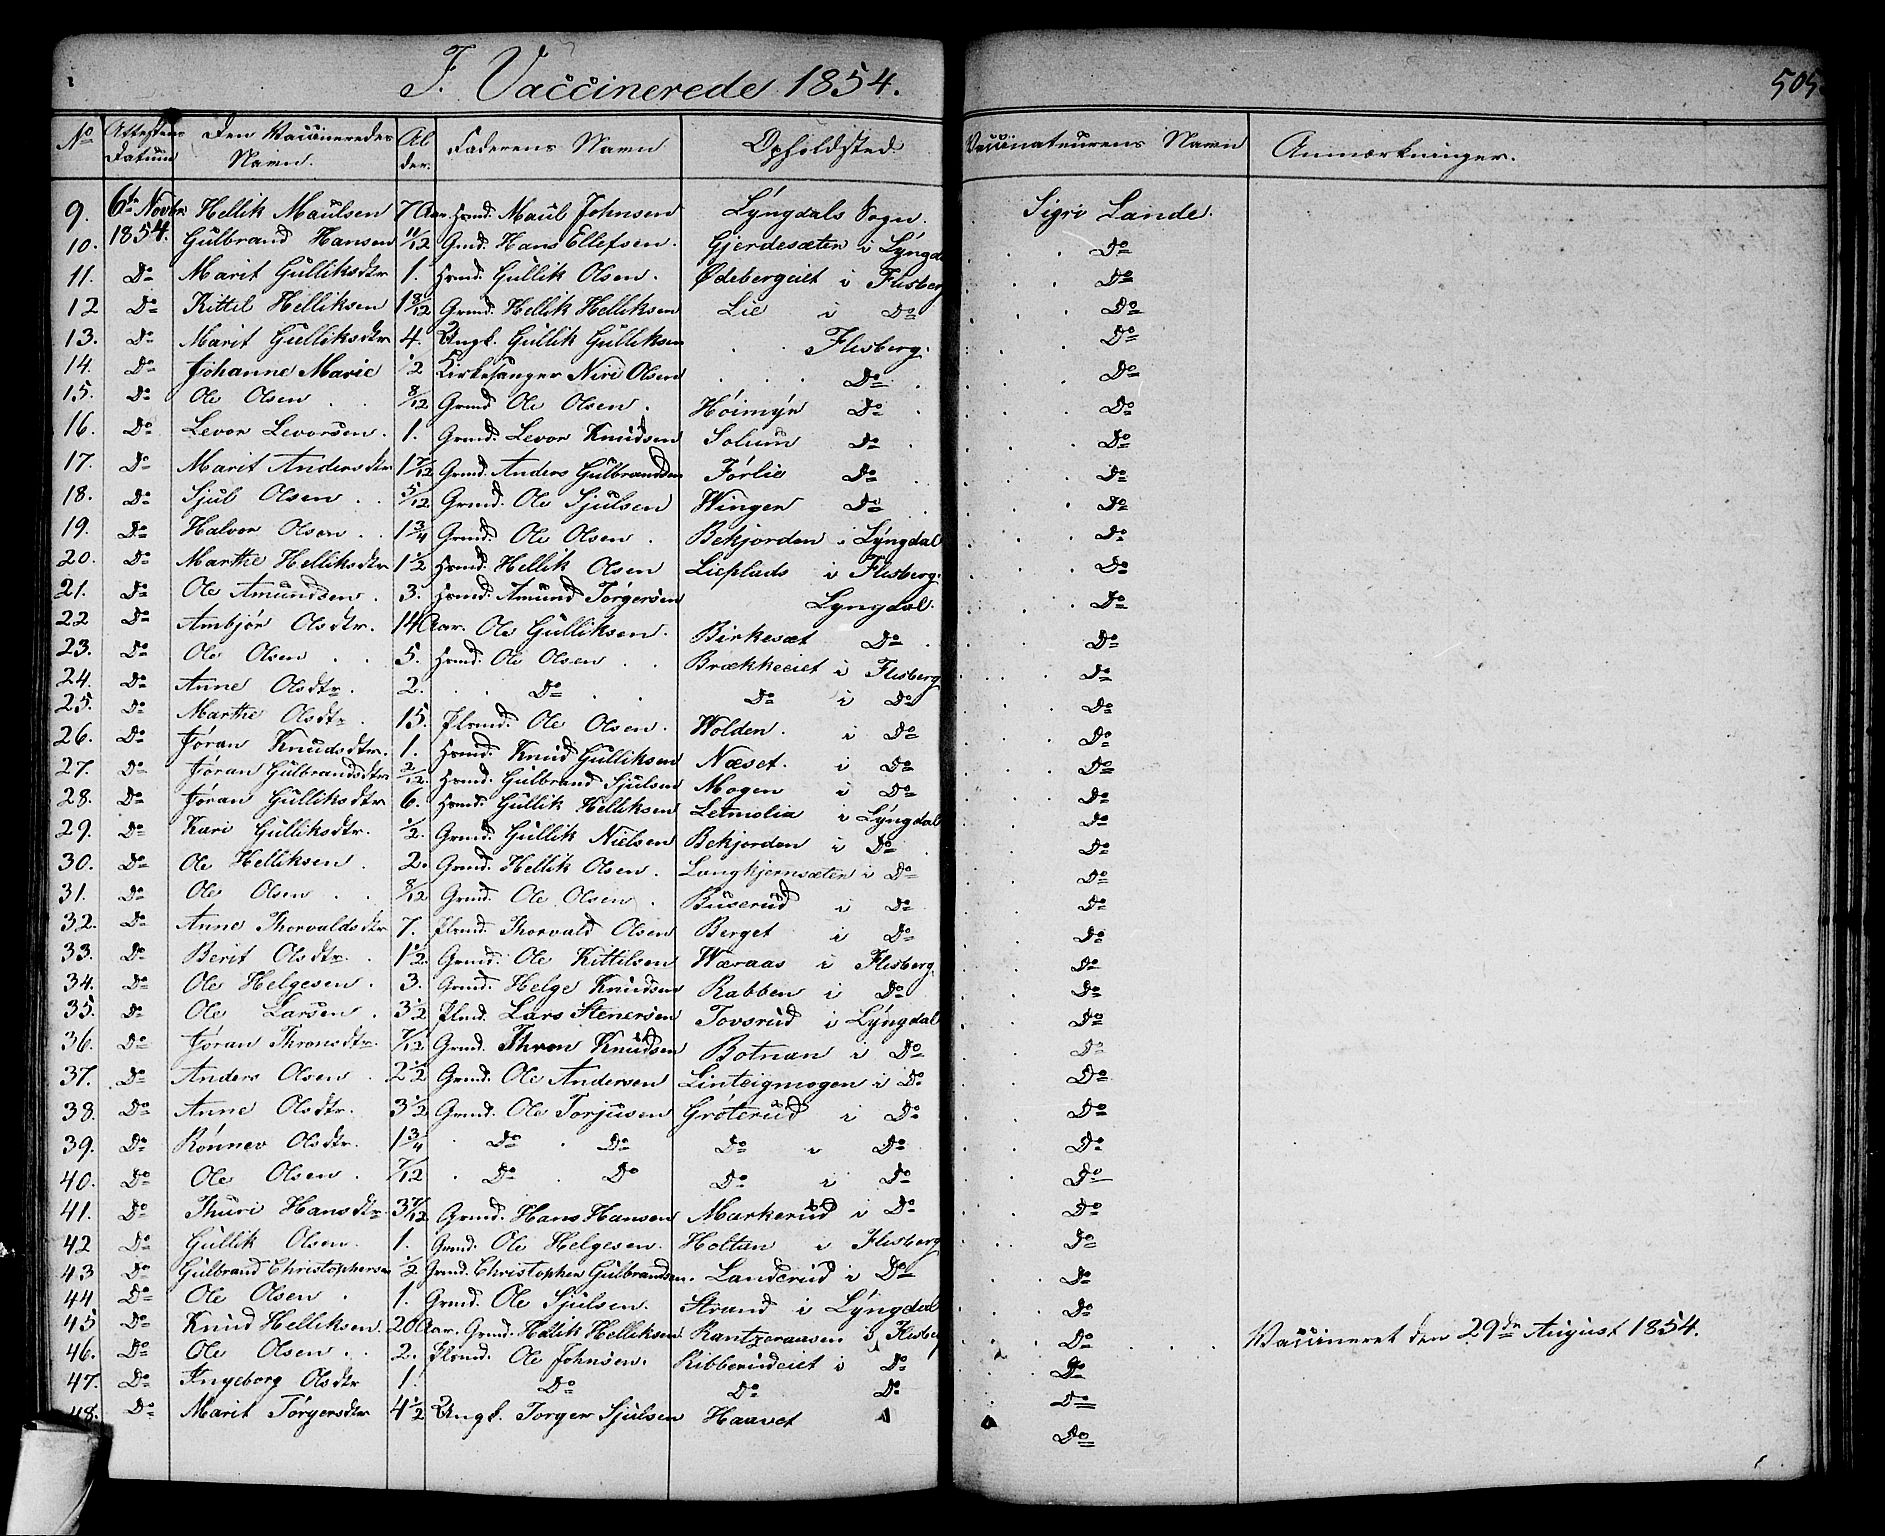 F. Vaccinerede 1854.
505.
No Attestens Datum Den Vaccineredes Navn. Alder. Faderens Navn Opholdsted. Vaccinateurens Navn Anmærkninger.
9. 6te Novbr 1854. Hellik Maulsen 7 Aar. Hsmd. Maul Johnsen Lyngdals Sogn. Sigri Lande.
10. Gulbrand Hansen 11/12 Gmd. Hans Ellefsen. Gjerdesæter i Lyngd Do
11. Do Marit Gulliksdtr 1. Hsmd. Gullik Olsen. Ødebergeiet i Flesberg Do
12 Do Kittil Helliksen 1 8/12 Grmd. Hellik Helliksen Lie i Do Do
13. Do Marit Gulliksdtr 4. Ungk. Gullik Gulliksen Flesberg. Do
14. Do Johanne Marie 1/2 Kirkesanger Niri Olsen Do Do
15. Do Ole Olsen 8/12 Grmd Ole Olsen. Høimyr Do Do
16. Do Levor Levorsen. 1. Grmd. Levor Knudsen Solum Do Do
17. Do Marit Andersdtr 1 7/12 Grmd. Anders Gulbrandsen Førlie Do Do
18. Do Sjul Olsen 5/12 Grmd. Ole Sjulsen Winger Do Do
19. Do Halvor Olsen 1 3/4 Grmd. Ole Olsen. Bekjorden i Lyngdal Do
20. Do Marthe Helliksdtr 1 1/2 Hsmd. Hellik Olsen Lieplads i Flesberg. Do
21. Do Ole Amundsen. 3. Hsmd. Amund Torgersen Lyngdal. Do
22 Do Ambjør Olsdtr. 14 Aar. Ole Gulliksen. Birkesæt Do Do
23. Do Ole Olsen 5. Hsmd. Ole Olsen Brækkeeiet i Flesberg Do
24. Do Anne Olsdtr. 2. Do Do i Do Do
25. Do Marthe Olsdtr. 15. Plsmd. Ole Olsen. Wolden. i Do Do
26. Do Jøran Knudsdtr. 1. Hsmd. Knud Gulliksen Næset. i Do Do
27. Do Jøran Gulbrandsdtr 2/12. Hsmd. Gulbrand Sjulsen Mogen i Do Do
28. Do Jøran Gulliksdtr 6. Hsmd. Gullik Helliksen Letmolia i Lyngdal Do
29. Do Kari Gulliksdtr. 1/2. Grmd. Gullik Nielsen Bekjorden i Do Do
30. Do Ole Helliksen. 2. Grmd. Hellik Olsen. Langkjernsæter i Do Do
31. Do Ole Olsen 8/12 Grmd. Ole Olsen. Buserud i Do Do
32. Do Anne Thorvaldsdtr 7. Plsmd. Thorvald Olsen Berget i Do Do
33. Do Berit Olsdtr. 1 1/2. Grmd. Ole Kittilsen Wæraas i Flesberg. Do
34. Do Ole Helgesen. 3. Grmd. Helge Knudsen Rabben i Do Do
35. Do Ole Larsen. 3 1/2 Plsmd. Lars Stenersen Tovsrud i Lyngdal Do
36. Do Jøran Thronsdtr. 7/12 Grmd. Thron Knudsen Botnan i Do Do
37. Do Anders Olsen. 2 1/2 Grmd. Ole Andersen Linteigmogen i Do Do
38. Do Anne Olsdtr. 3 1/2 Grmd. Ole Torjusen Grøterud i Do Do
39. Do Rønnev Olsdtr. 1 3/4 Do Do Do i Do Do
40. Do Ole Olsen. 7/12 Do Do Do i Do Do
41. Do Thuri Hansdtr 3 7/12 Grmd. Hans Hansen Markerud i Do Do
42 Do Gullik Olsen. 1. Grmd. Ole Helgesen. Holtan i Flesberg Do
43 Do Gulbrand Christophersen 1/2 Grmd. Christopher Gulbrandsen. Landerud i Do Do
44 Do Ole Olsen 1. Grmd. Ole Sjulsen. Strand i Lyngdal Do
45 Do Knud Helliksen. 20 Aar. Grmd. Hellik Helliksen Rantzeraasen i Flesberg Do Vaccineret den 29de August 1854.
46. Do Ole Olsen 2. Plsmd. Ole Johnsen. Ribberudeiet i Do Do
47. Do Ingeborg Olsdtr 1. Do Do Do Do
48. Do Marit Torgersdtr 4 1/2 Ungk. Torger Sjulsen Haavet Do